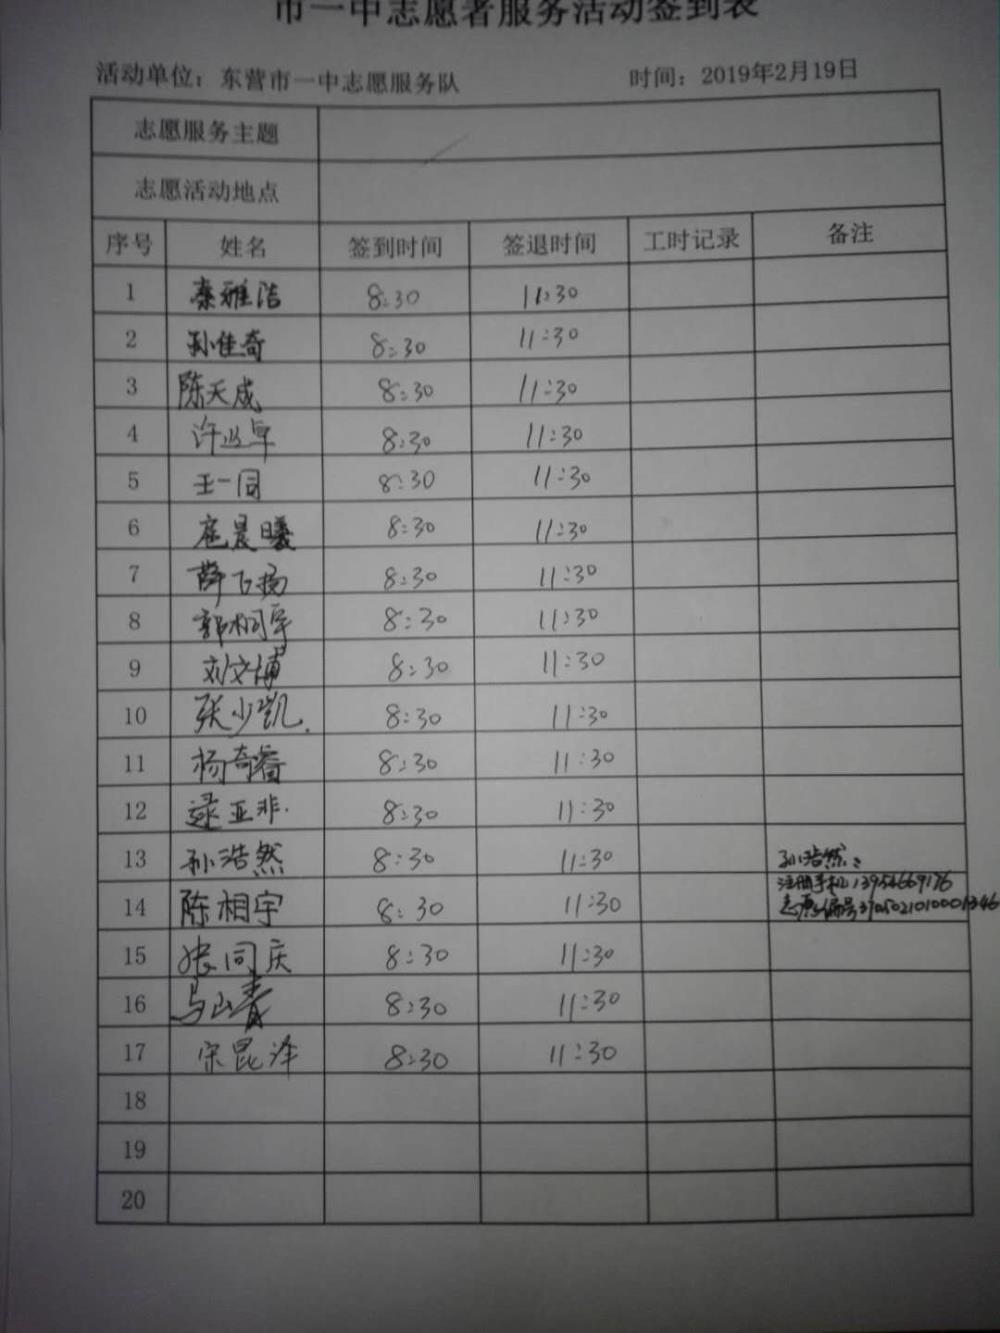 市一中志愿者服务活动签到表
活动单位：东营市一中志愿服务队 时间：2019年2月19日
志愿服务主题
志愿活动地点
序号 姓名 签到时间 签退时间 工时记录 备注
1 秦雅洁 8:30 11:30
2 孙佳奇 8:30 11:30
3 陈天成 8:30 11:30
4 许 卓 8:30 11:30
5 王一同 8:30 11:30
6 扈晨曦 8:30 11:30
7 薛飞扬 8:30 11:30
8 郭桐宇 8:30 11:30
9 刘文博 8:30 11:30
10 张少凯. 8:30 11:30
11 杨奇睿 8:30 11:30
12 逯亚非. 8:30 11:30
13 孙浩然 8:30 11:30 孙浩然：
注册手机13954669176
14 陈相宇 8:30 11:30 志愿编号
15 张同庆 8:30 11:30
16 马山青 8:30 11:30
17 宋昆泽 8:30 11:30
18
19
20